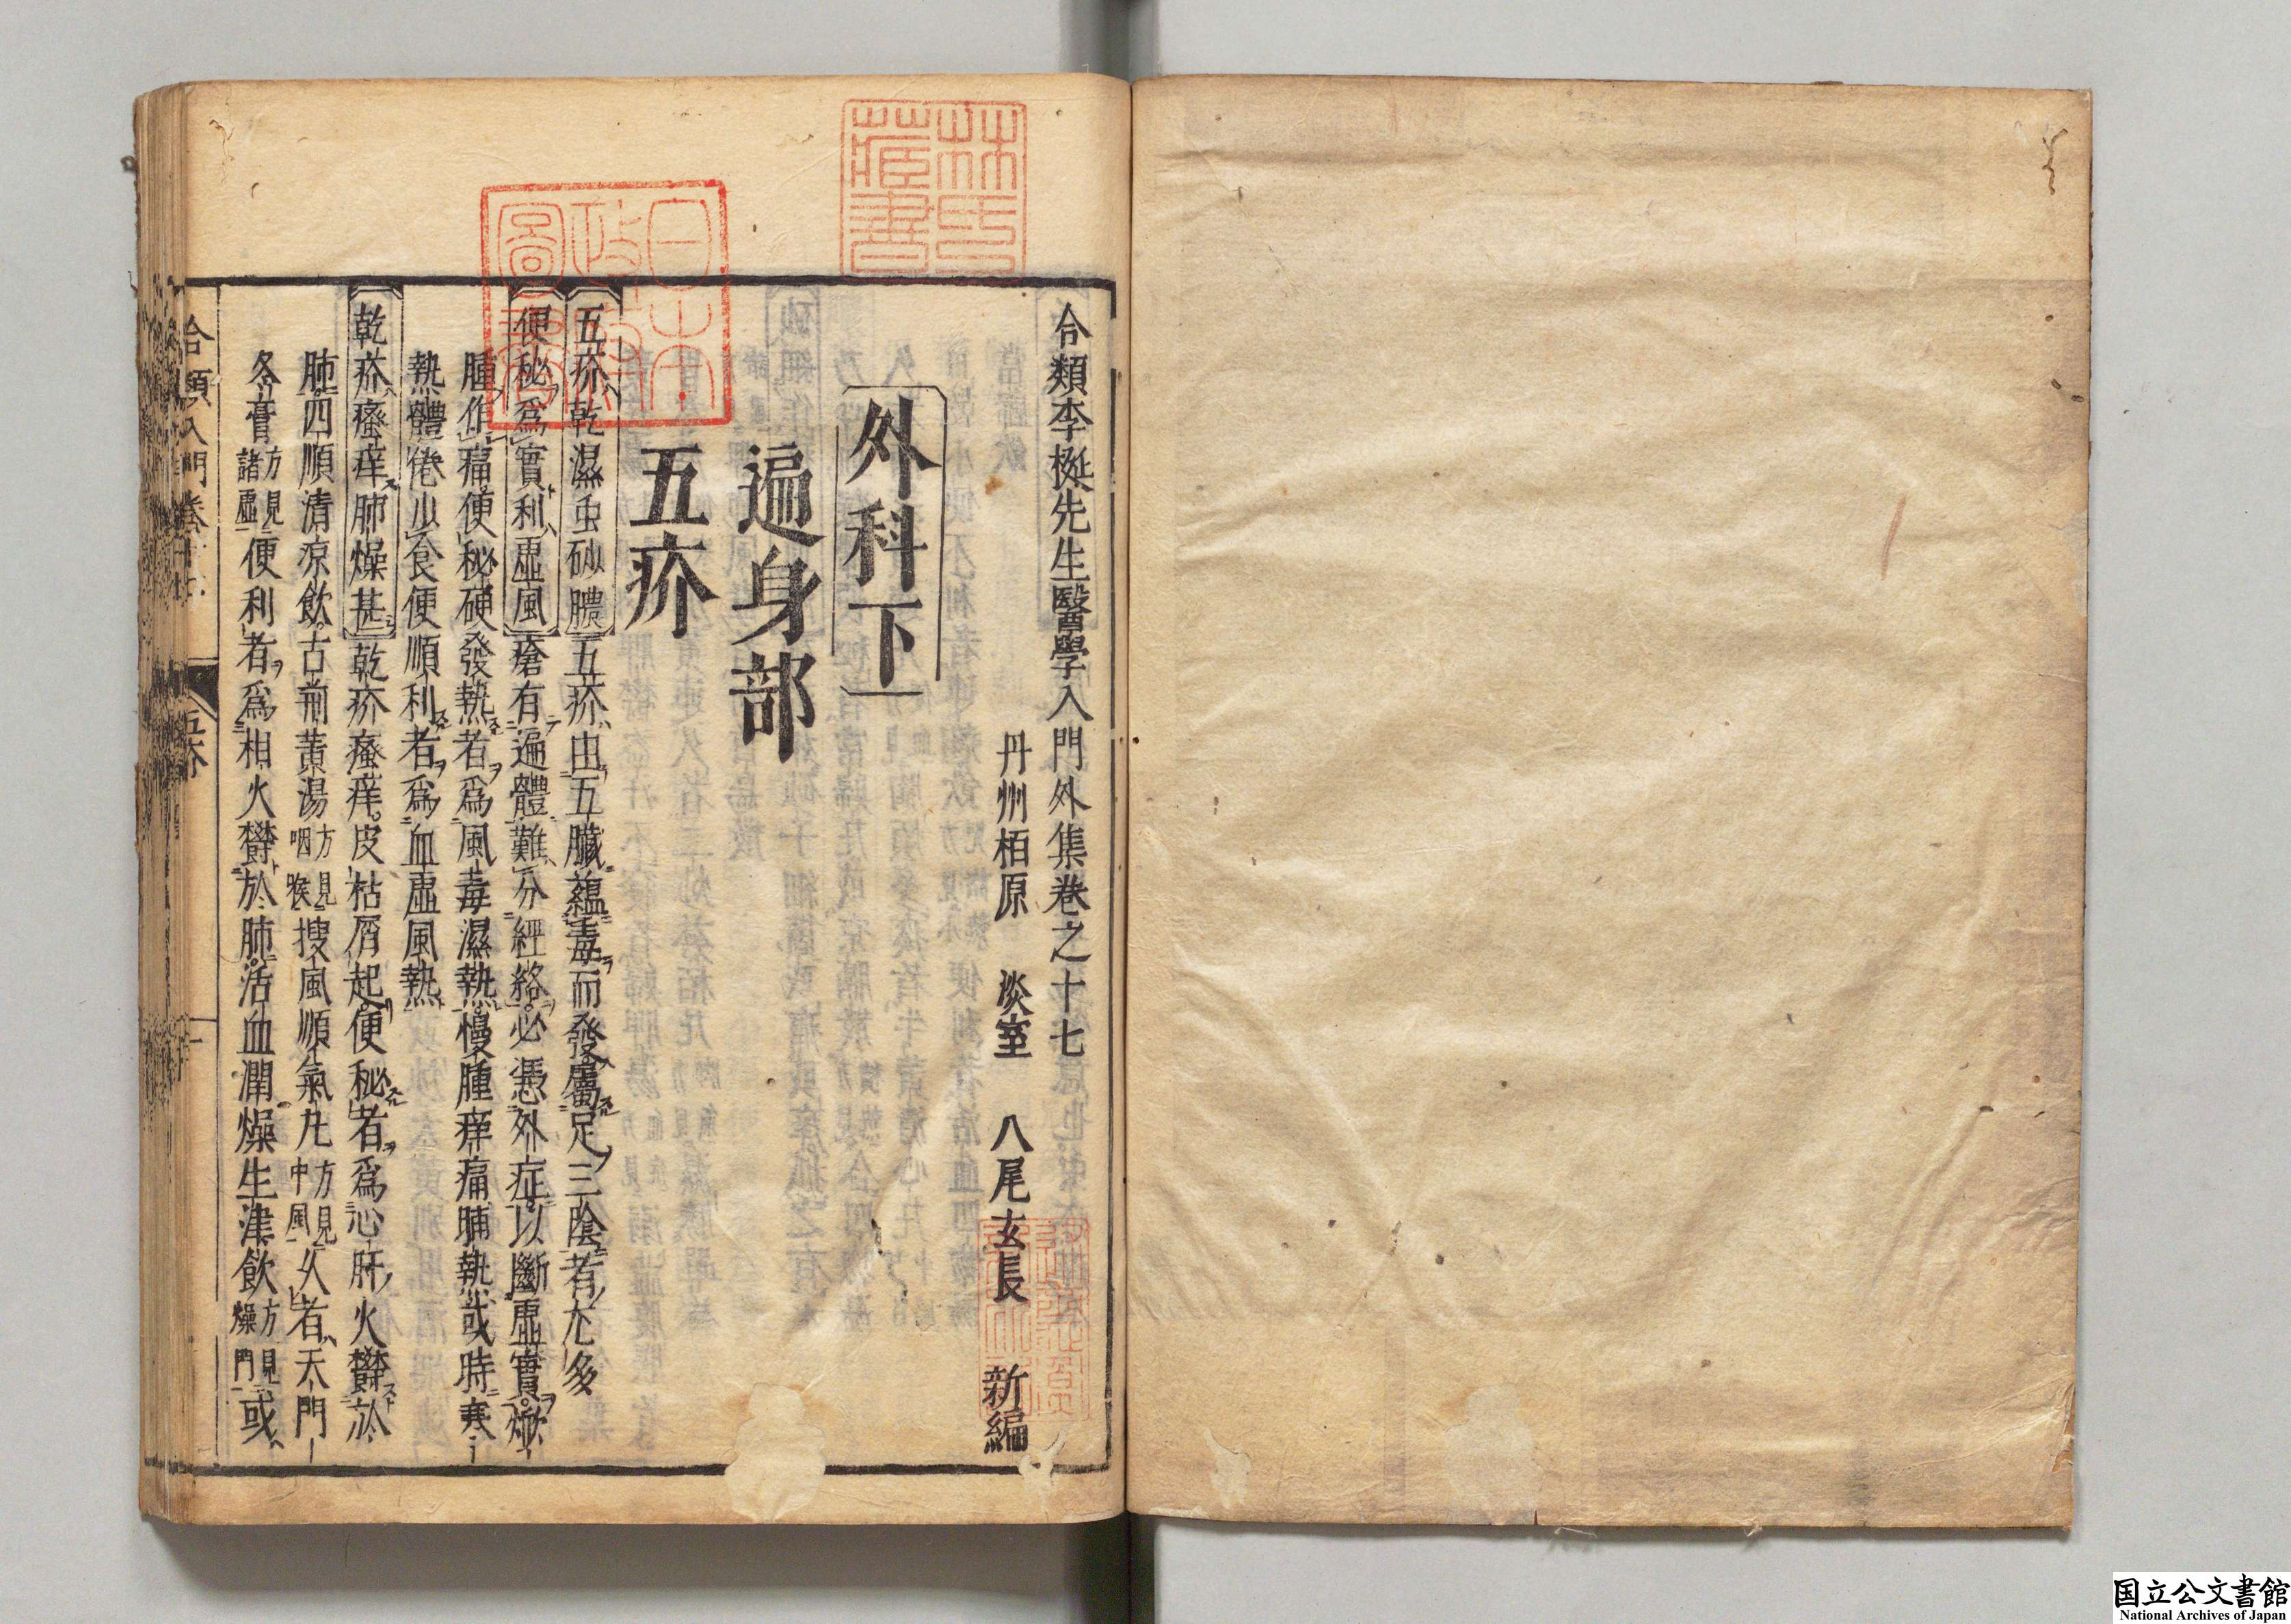 合類李梴先生醫學入門外集卷之十七
丹州栢原 淡室 八尾玄長 新編
外科下
遍身部
五疥
五疥乾濕虫砂膿五疥由五臟蘊毒而發屬足三陰者尤多
便秘爲實利虛風瘡有遍體難分經絡必憑外症以斷虛實焮
腫作痛便秘硬發熱者爲風毒濕熱慢腫痒痛晡熱或時寒
熱體倦少食便順利者爲血虛風熱
乾疥瘙痒肺燥甚乾疥瘙痒皮枯屑起便秘者爲心肝火鬱於
肺四順清凉飮古荊黄湯方見咽喉搜風順氣丸方見中風久者天門
冬膏方見諸虛便利者爲相火鬱於肺活血潤燥生津飮方見燥門或
合類入門卷十七
五疥
一
林氏藏書
日本政府圖書
国立公文書館
National Archives of Japan